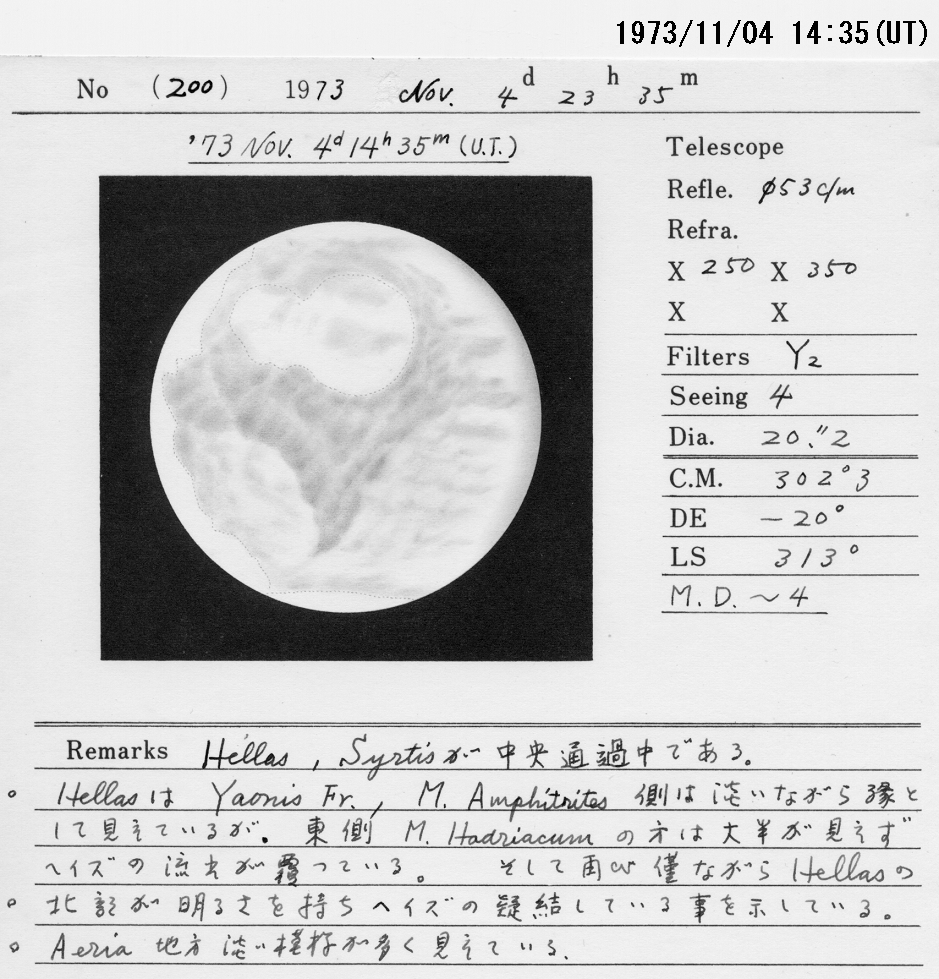 1973/11/04 14:35(UT)
No (200) 1973 Nov. 4d 23h 35m
'73 Nov. 4d 14h 35m (U.T.)
Telescope
Refle. φ53c/m
Refra.
X 250 X 350
X X
Filters Y2
Seeing 4
Dia. 20."2
C.M. 302°3
DE -20°
LS 313°
M.D. ~4
Remarks Hellas, Syrtisが中央通過中である。
。 Hellasは Yaonis Fr., M. Amphitrites 側は淡いながら縁と
して見えているが。東側 M. Hadriacum の方は大半が見えず
ヘイズの流出が覆っている。 そして再び僅ながら Hellasの
。 北部が明るさを持ちヘイズの凝結している事を示している。
。 Aeria 地方淡い模様が多く見えている.